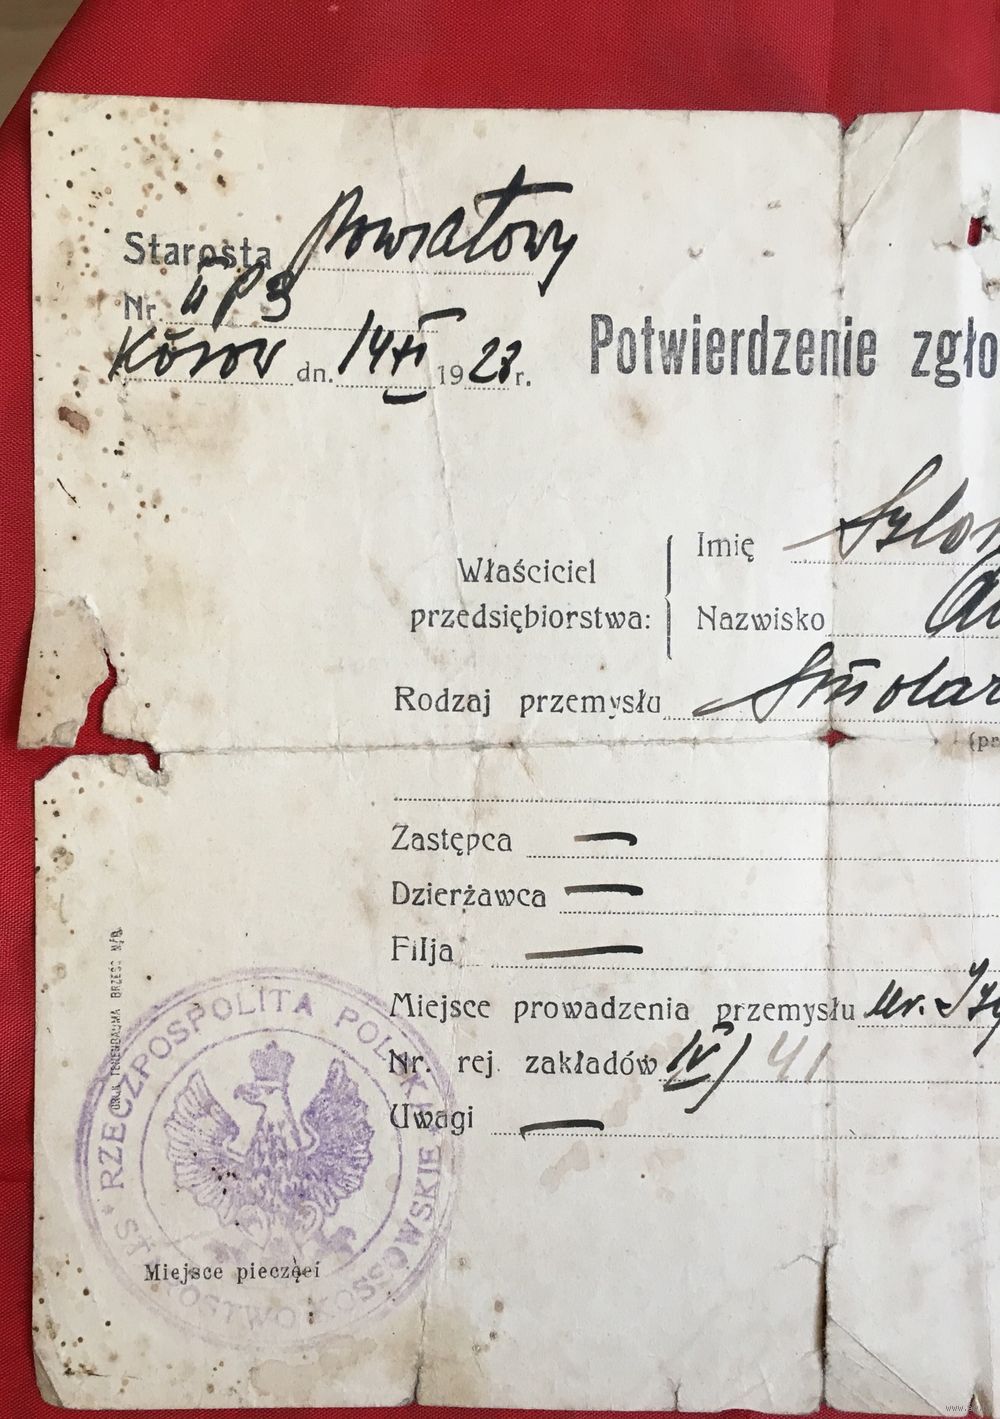 Starosta Powiatowy
Nr. II P 3
Kosów dn. 14 XI 1928 r.
Potwierdzenie zgło
Właściciel
przedsiębiorstwa:
Imię Szlom
Nazwisko
Rodzaj przemysłu Smolar
(pr
Zastępca —
Dzierżawca —
Filja —
Miejsce prowadzenia przemysłu ur.
Nr. rej. zakładów IV/41
Uwagi —
BRZEŚĆ N/B.
RZECZPOSPOLITA POLSKA
STAROSTWO KOSSOWSKIE
Miejsce pieczęci